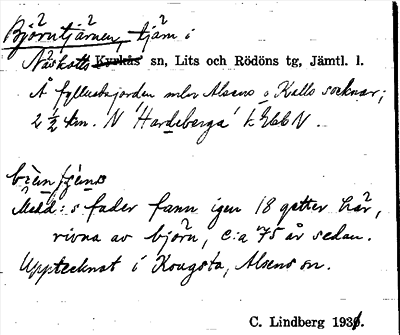 Björntjärnen, tjärn i
Näskotts Kyrkås sn, Lits och Rödöns tg, Jämtl. l.
Å fyllnadsjorden mln Alsens o Kalls socknar;
2 1/2 km. N Hardeberga
Medd:s fader fann igen 18 getter här,
rivna av björn, c:a 75 år sedan.
Upptecknat i Kougsta, Alsens sn.
C. Lindberg 193